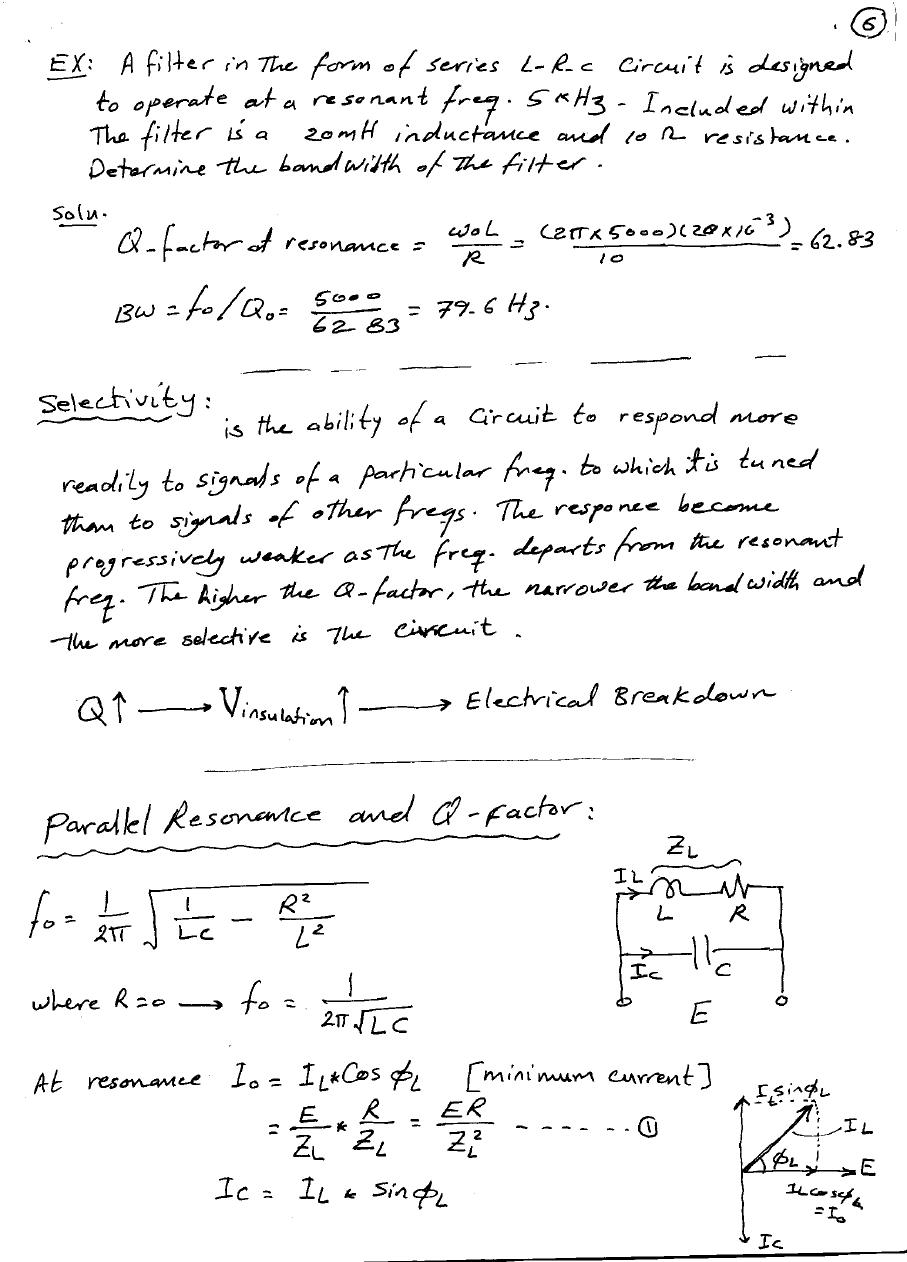 6
EX: A filter in The form of series L-R-C Circuit is designed
to operate at a resonant freq. 5 KHz - Included within
The filter is a 20mH inductance and 10 Ω resistance.
Determine the bandwidth of The filter.
Soln.
Q-factor at resonance = ω₀L/R = (2π×5000)(20×10⁻³)/10 = 62.83
BW = f₀/Q₀ = 5000/62.83 = 79.6 Hz.
Selectivity:
is the ability of a Circuit to respond more
readily to signals of a particular freq. to which it is tuned
than to signals of other freqs. The responce become
progressively weaker as The freq. departs from the resonant
freq. The higher the Q-factor, the narrower the bandwidth and
The more selective is The circuit.
Q↑ → Vinsulation↑ → Electrical Breakdown
Parallel Resonance and Q-factor:
ZL
IL
L R
f₀ = 1/2π √(1/LC - R²/L²)
Ic C
where R=0 → f₀ = 1/2π√LC
E
At resonance I₀ = IL*Cos ϕL [minimum current]
= E/ZL * R/ZL = ER/ZL² ------ ①
Ic = IL * Sin ϕL
IL sinϕL
IL
ϕL E
IL cosϕL
= I₀
Ic